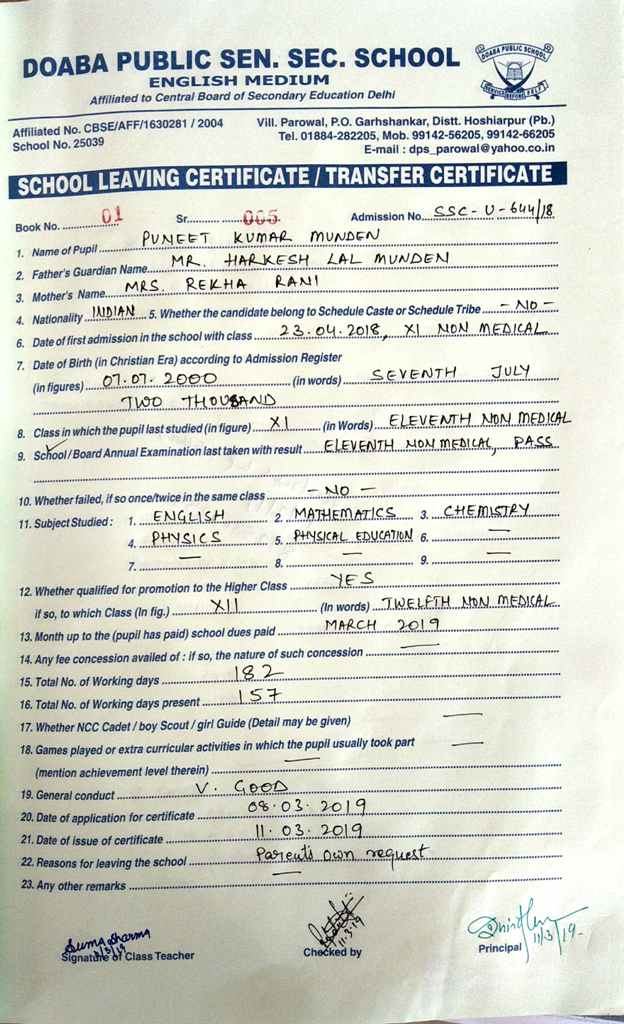 DOABA PUBLIC SEN. SEC. SCHOOL
ENGLISH MEDIUM
Affiliated to Central Board of Secondary Education Delhi
DOABA PUBLIC SCHOOL
Affiliated No. CBSE/AFF/1630281 / 2004
School No. 25039
Vill. Parowal, P.O. Garhshankar, Distt. Hoshiarpur (Pb.)
Tel. 01884-282205, Mob. 99142-56205, 99142-66205
E-mail : dps_parowal@yahoo.co.in
SCHOOL LEAVING CERTIFICATE / TRANSFER CERTIFICATE
Book No. 01 Sr. 005 Admission No. SSC-U-644/18
1. Name of Pupil PUNEET KUMAR MUNDEN
2. Father's Guardian Name MR. HARKESH LAL MUNDEN
3. Mother's Name MRS. REKHA RANI
4. Nationality INDIAN 5. Whether the candidate belong to Schedule Caste or Schedule Tribe - NO -
6. Date of first admission in the school with class 23.04.2018, XI NON MEDICAL
7. Date of Birth (in Christian Era) according to Admission Register
(in figures) 07.07.2000 (in words) SEVENTH JULY
TWO THOUSAND
8. Class in which the pupil last studied (in figure) XI (in Words) ELEVENTH NON MEDICAL
9. School / Board Annual Examination last taken with result ELEVENTH NON MEDICAL, PASS
10. Whether failed, if so once/twice in the same class - NO -
11. Subject Studied : 1. ENGLISH 2. MATHEMATICS 3. CHEMISTRY
4. PHYSICS 5. PHYSICAL EDUCATION 6. —
7. — 8. — 9. —
12. Whether qualified for promotion to the Higher Class YES
if so, to which Class (In fig.) XII (In words) TWELFTH NON MEDICAL
13. Month up to the (pupil has paid) school dues paid MARCH 2019
14. Any fee concession availed of : if so, the nature of such concession —
15. Total No. of Working days 182
16. Total No. of Working days present 157
17. Whether NCC Cadet / boy Scout / girl Guide (Detail may be given) —
18. Games played or extra curricular activities in which the pupil usually took part —
(mention achievement level therein) —
19. General conduct V. GOOD
20. Date of application for certificate 08.03.2019
21. Date of issue of certificate 11.03.2019
22. Reasons for leaving the school Parent's own request
23. Any other remarks —
Suma Sharma
11/3/19
Signature of Class Teacher
11-3-19
Checked by
11/3/19
Principal